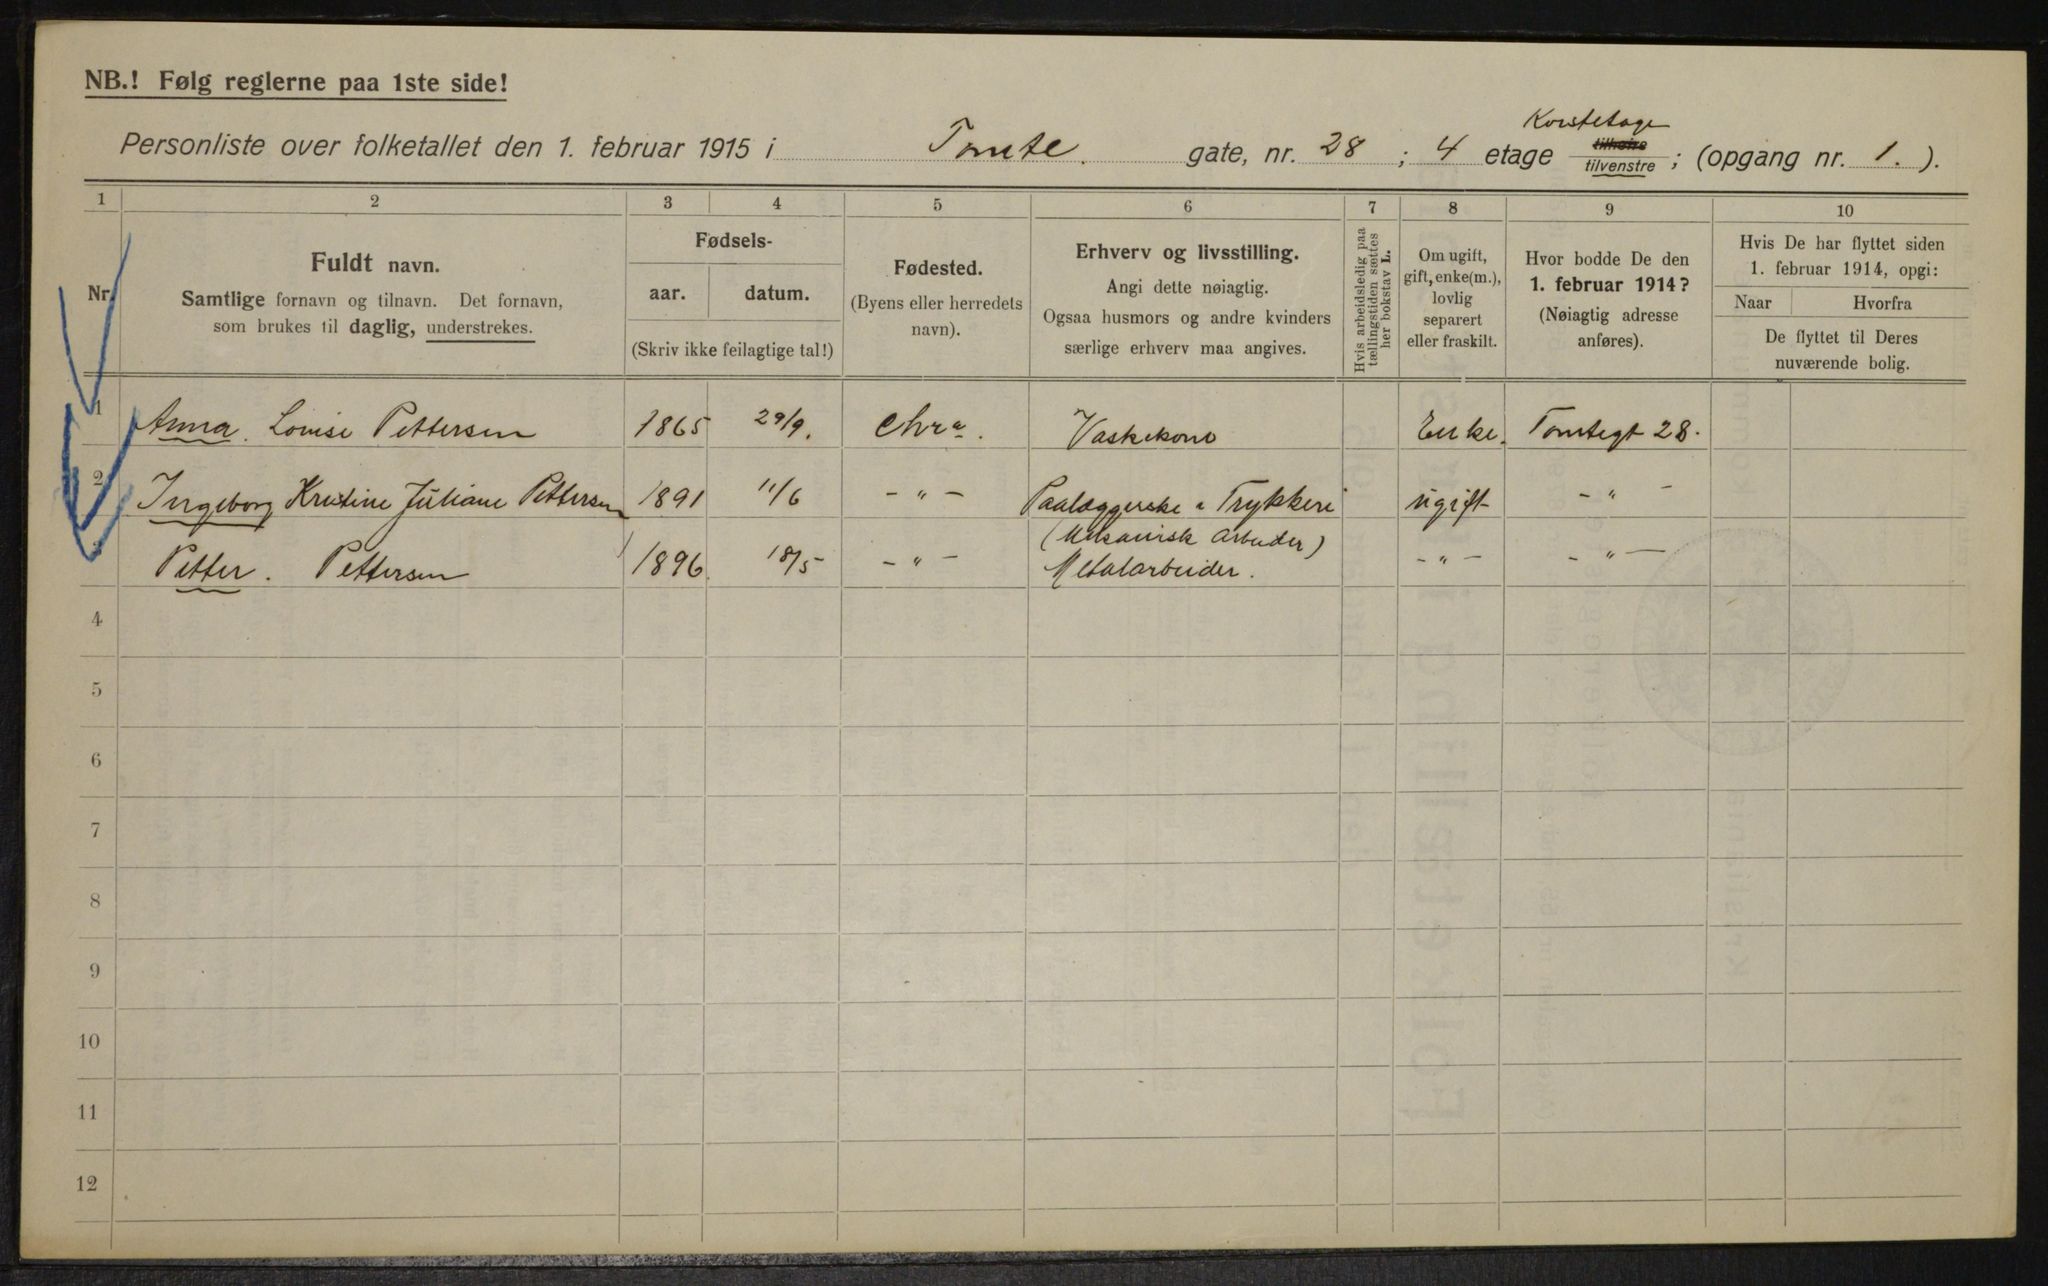 NB.! Følg reglerne paa 1ste side!
Personliste over folketallet den 1. februar 1915 i Tomte. gate, nr. 28 ; 4 etage Kvistetage tilhøire tilvenstre ; (opgang nr. 1. ).
1 2 3 4 5 6 7 8 9 10
Nr.
Fuldt navn.
Samtlige fornavn og tilnavn. Det fornavn,
som brukes til daglig, understrekes.
Fødsels-
aar. datum.
(Skriv ikke feilagtige tal!)
Fødested.
(Byens eller herredets
navn).
Erhverv og livsstilling.
Angi dette nøiagtig.
Ogsaa husmors og andre kvinders
særlige erhverv maa angives.
Hvis arbeidsledig paa
tællingstiden sættes
her bokstav L.
Om ugift,
gift, enke(m.),
lovlig
separert
eller fraskilt.
Hvor bodde De den
1. februar 1914?
(Nøiagtig adresse
anføres).
Hvis De har flyttet siden
1. februar 1914, opgi:
Naar Hvorfra
De flyttet til Deres
nuværende bolig.
1 Anna. Louise Pettersen 1865 29/9. Chra. Vaskekone Enke. Tomtegt 28.
2 Ingeborg Kristine Juliane Pettersen 1891 11/6 - " - Paalæggerske i Trykkeri ugift - " -
(Mekanisk Arbeider)
3 Petter. Pettersen 1896. 18/5 - " - Metalarbeider. - " - - " -
4
5
6
7
8
9
10
11
12